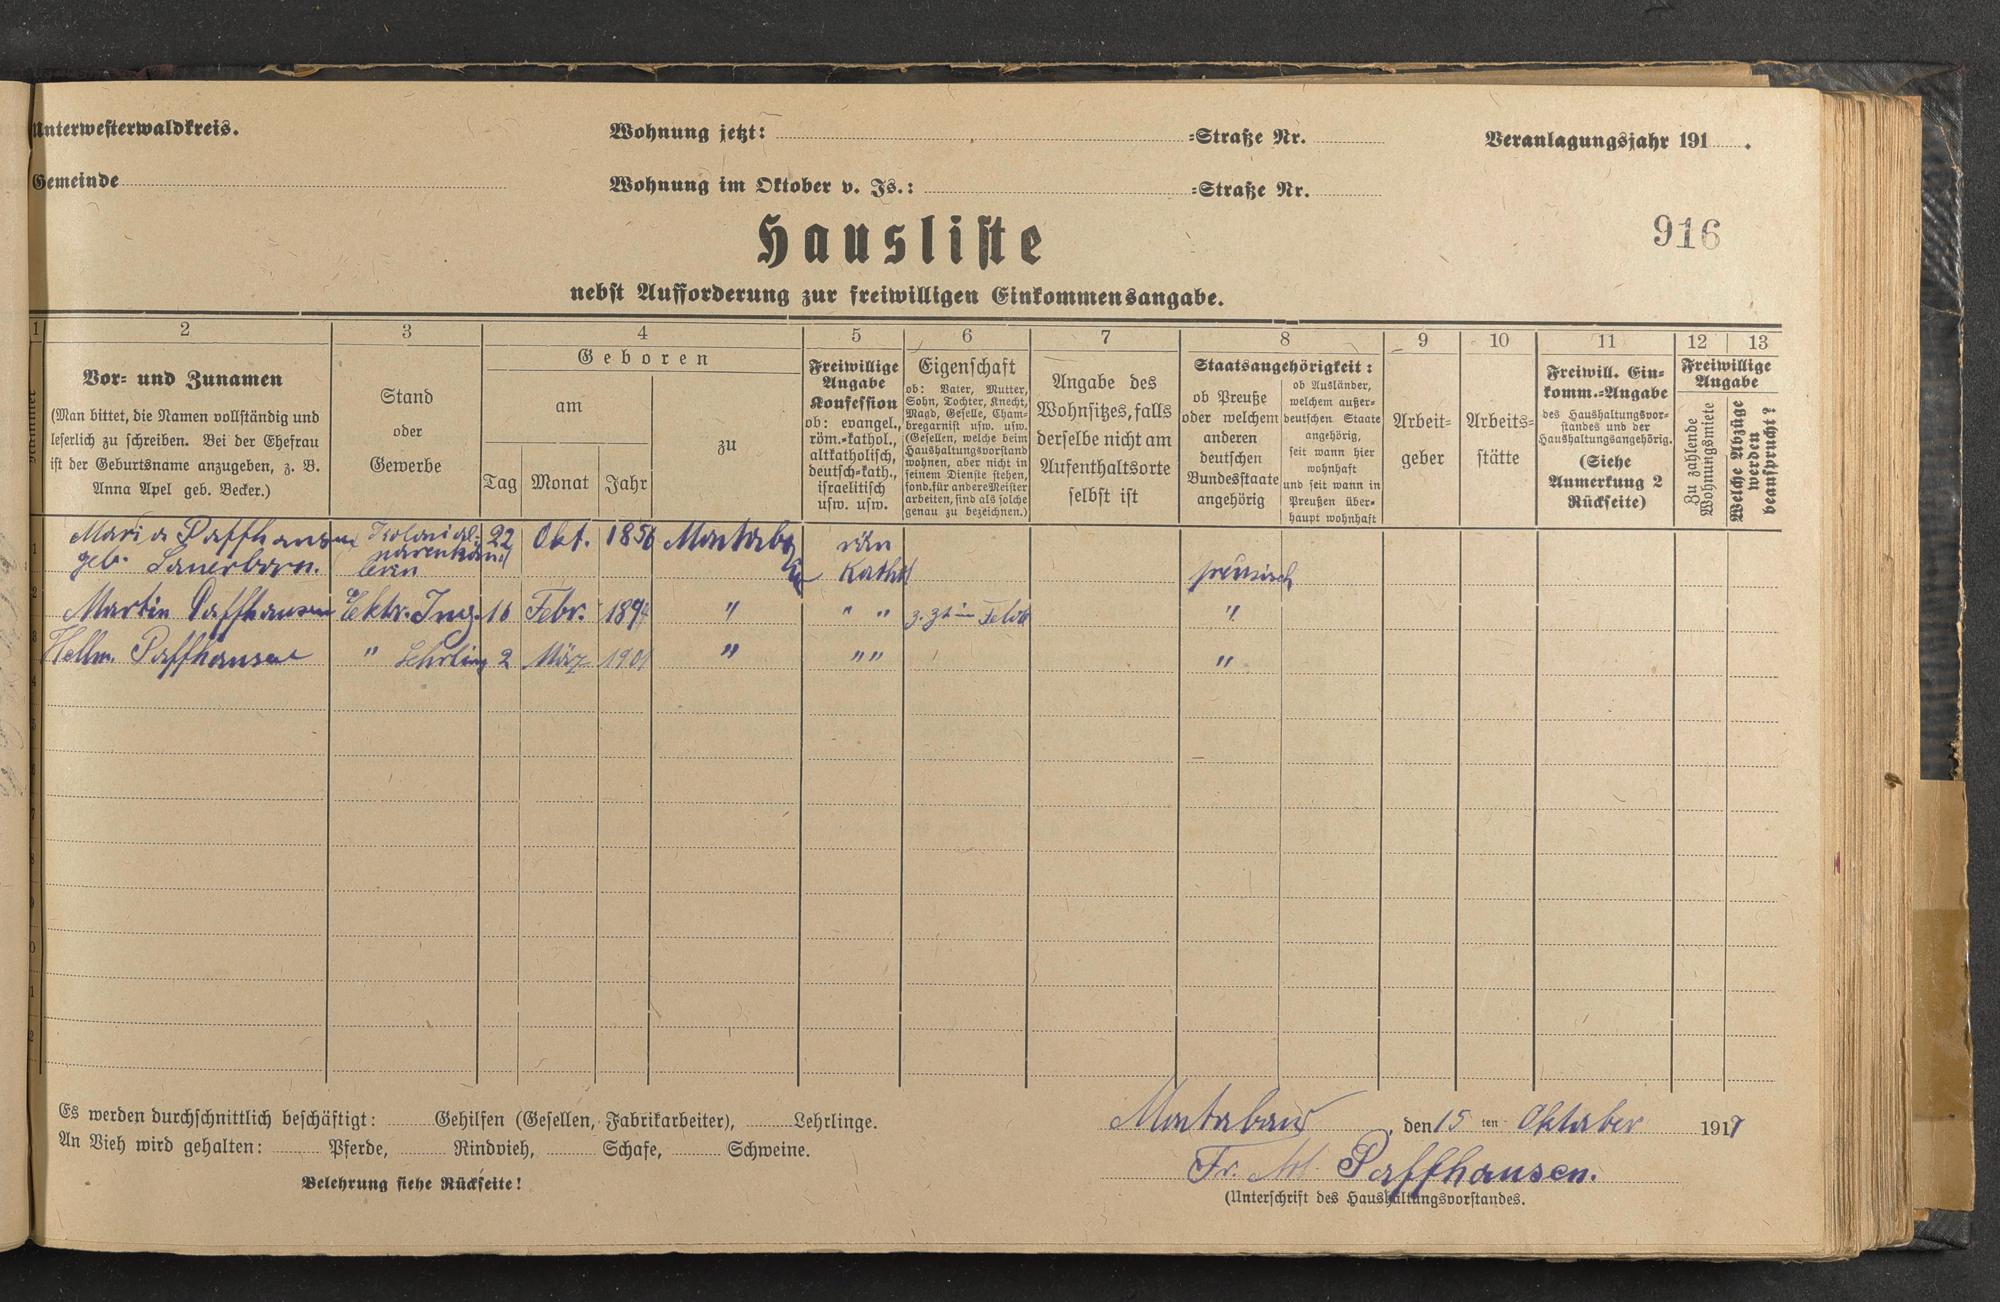 Unterwesterwaldkreis.
Wohnung jetzt: =Straße Nr.
Veranlagungsjahr 191 .
Gemeinde
Wohnung im Oktober v. Js.: =Straße Nr.
Hausliste
916
nebst Aufforderung zur freiwilligen Einkommensangabe.
1 2 3 4 5 6 7 8 9 10 11 12 13
Nummer
Vor- und Zunamen
(Man bittet, die Namen vollständig und
leserlich zu schreiben. Bei der Ehefrau
ist der Geburtsname anzugeben, z. B.
Anna Apel geb. Becker.)
Stand
oder
Gewerbe
Geboren
am
Tag Monat Jahr
zu
Freiwillige
Angabe
Konfession
ob: evangel.,
röm.-kathol.,
altkatholisch,
deutsch-kath.,
israelitisch
usw. usw.
Eigenschaft
ob: Vater, Mutter,
Sohn, Tochter, Knecht,
Magd, Geselle, Cham-
bregarnist usw. usw.
(Gesellen, welche beim
Haushaltungsvorstand
wohnen, aber nicht in
seinem Dienste stehen,
sond. für andere Meister
arbeiten, sind als solche
genau zu bezeichnen.)
Angabe des
Wohnsitzes, falls
derselbe nicht am
Aufenthaltsorte
selbst ist
Staatsangehörigkeit:
ob Preuße
oder welchem
anderen
deutschen
Bundesstaate
angehörig
ob Ausländer,
welchem außer-
deutschen Staate
angehörig,
seit wann hier
wohnhaft
und seit wann in
Preußen über-
haupt wohnhaft
Arbeit-
geber
Arbeits-
stätte
Freiwill. Ein-
komm.-Angabe
des Haushaltungsvor-
standes und der
Haushaltungsangehörig.
(Siehe
Anmerkung 2
Rückseite)
Freiwillige
Angabe
Zu zahlende
Wohnungsmiete
Welche Abzüge
werden
beansprucht?
1 Maria Paffhausen Kolonial- 22 Okt. 1856 Montabau röm
geb. Sauerborn. warenhänd lerin Kathol preusisch
2 Martin Paffhausen Elektr. Ing. 16 Febr. 1894 " " " z. Zt im Felde "
3 Hellm. Paffhausen " Lehrling 2 März 1901 " " " "
4
5
6
7
8
9
0
1
2
Es werden durchschnittlich beschäftigt: Gehilfen (Gesellen, Fabrikarbeiter), Lehrlinge.
An Vieh wird gehalten: Pferde, Rindvieh, Schafe, Schweine.
Belehrung siehe Rückseite!
Montabaur, den 15 ten Oktober 1917
Fr. Paffhausen.
(Unterschrift des Haushaltungsvorstandes.